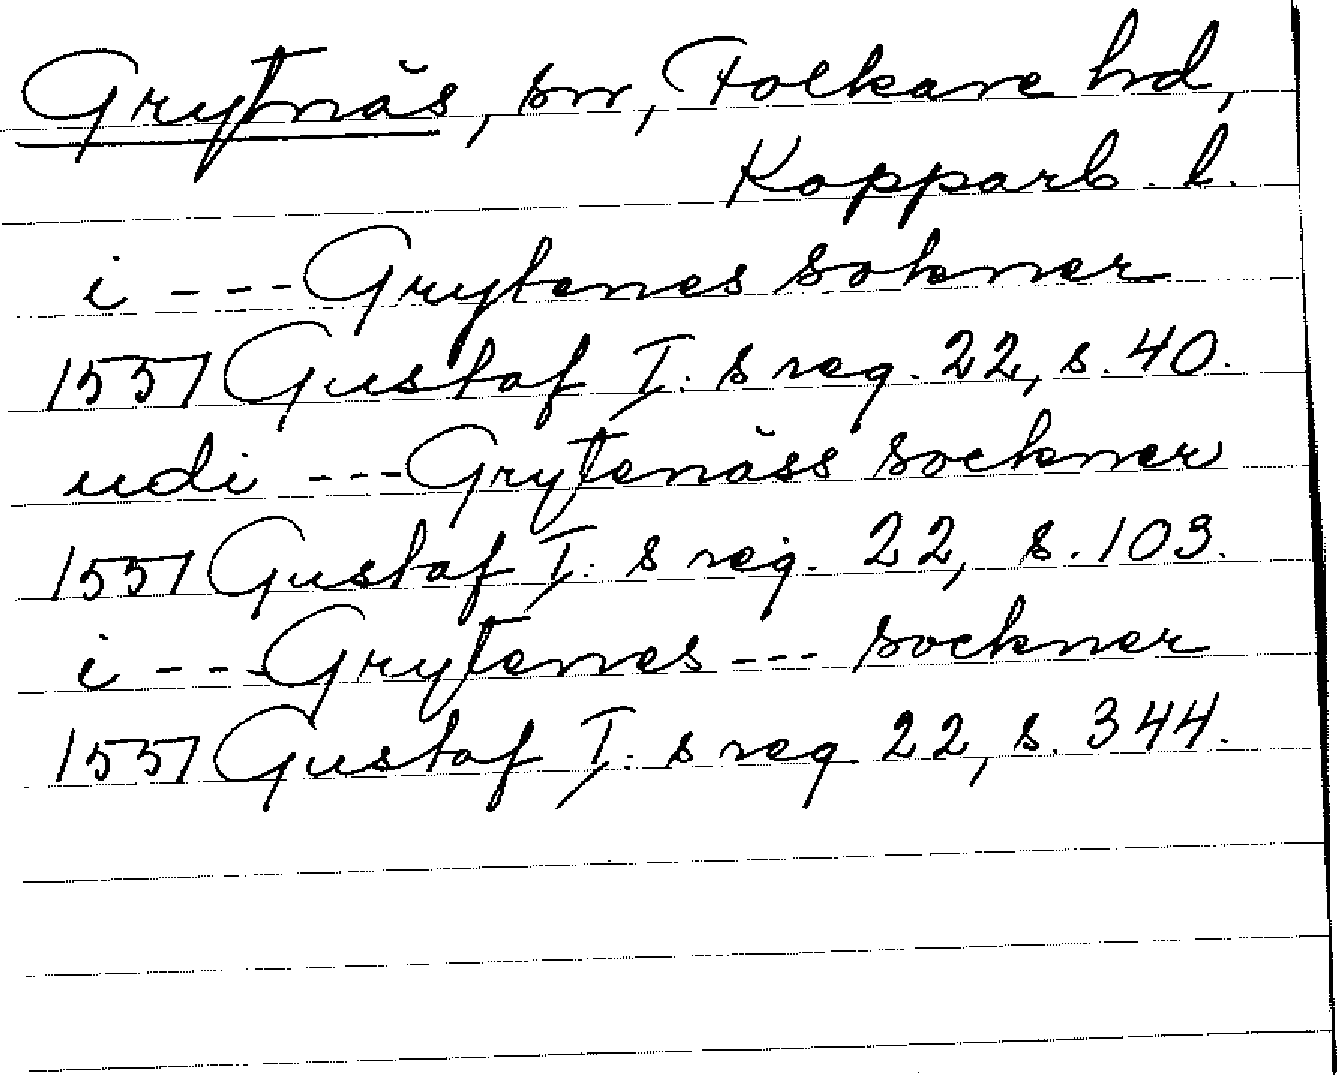 Grytnäs, sn, Folkare hd,
Kopparb. l.
i --- Grytenes sokner
1551 Gustaf I:s reg. 22, s. 40.
udi --- Grytenäss sockner
1551 Gustaf I:s reg. 22, s. 103.
i --- Grytenes --- sockner
1551 Gustaf I:s reg 22, s. 344.